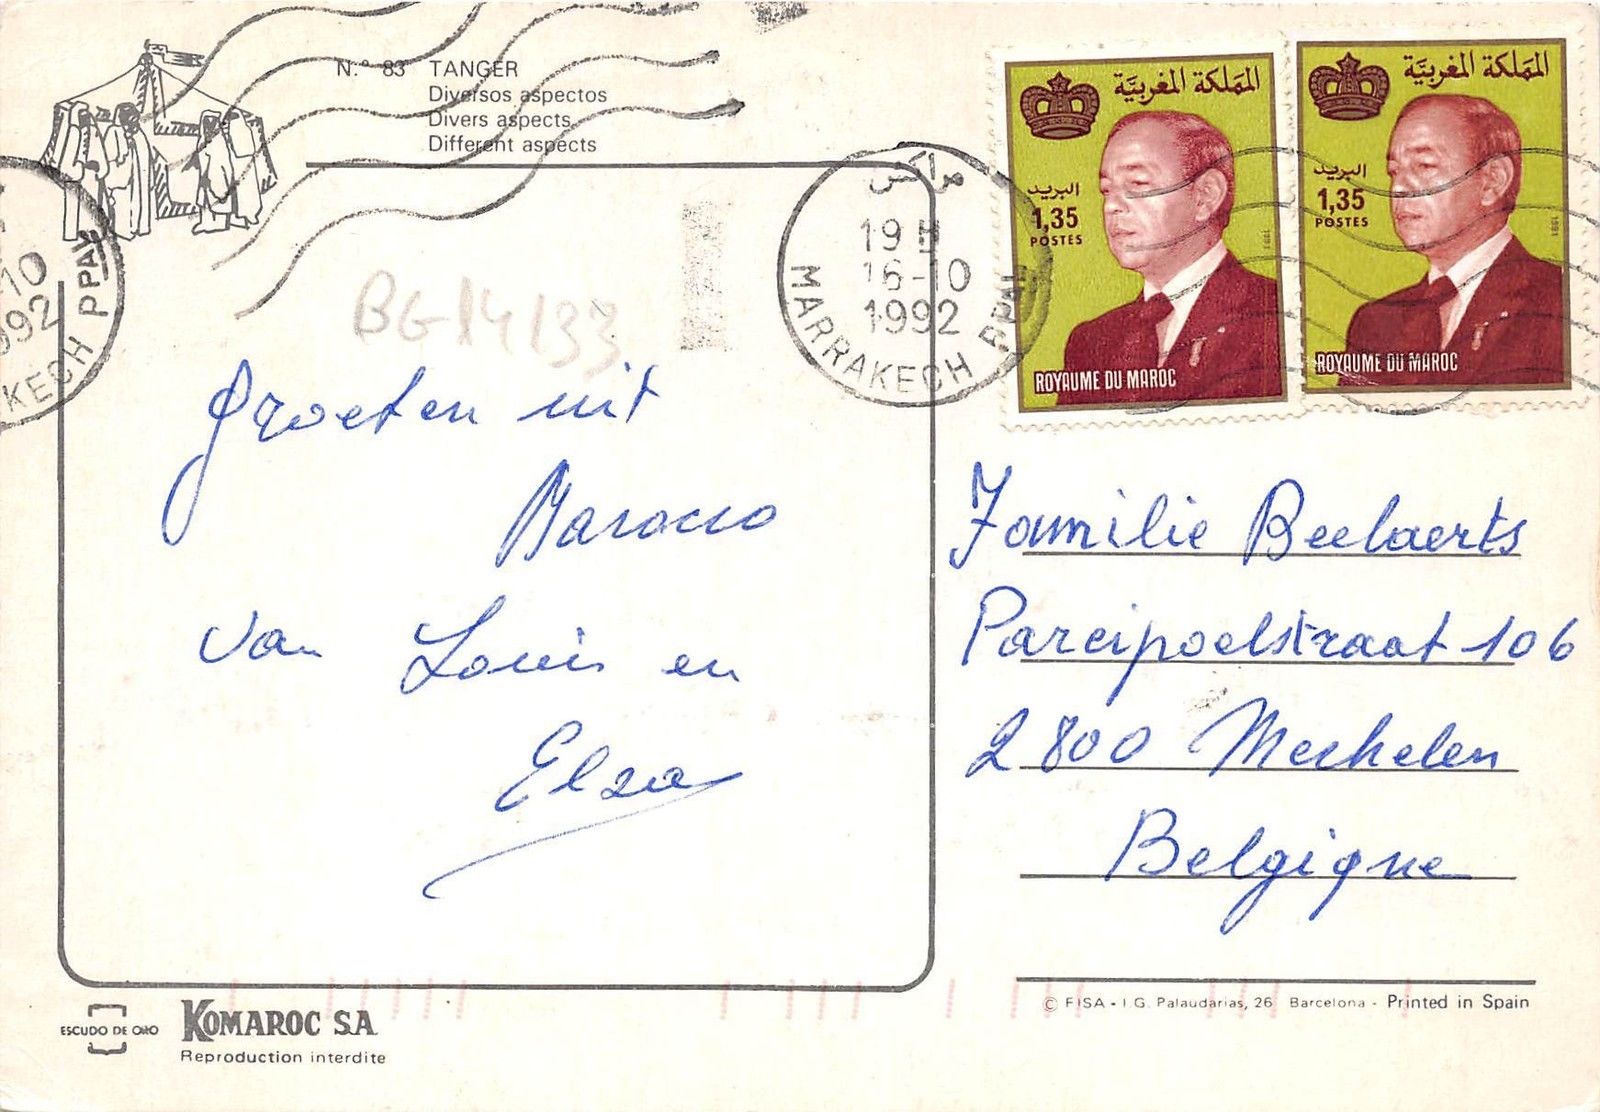 N.º 83 TANGER
Diversos aspectos
Divers aspects
Different aspects
المملكة المغربية
البريد
1,35
POSTES
1991
ROYAUME DU MAROC
المملكة المغربية
البريد
1,35
POSTES
1991
ROYAUME DU MAROC
مراكش
19 H
16-10
1992
MARRAKECH PPAL
-10
992
KECH PPAL
BG14133
Groeten uit
Marocco
van Louis en
Elza
Familie Beelaerts
Parcipoelstraat 106
2800 Mechelen
Belgique
ESCUDO DE ORO
KOMAROC S.A
Reproduction interdite
© FISA - I.G. Palaudarias, 26 Barcelona - Printed in Spain